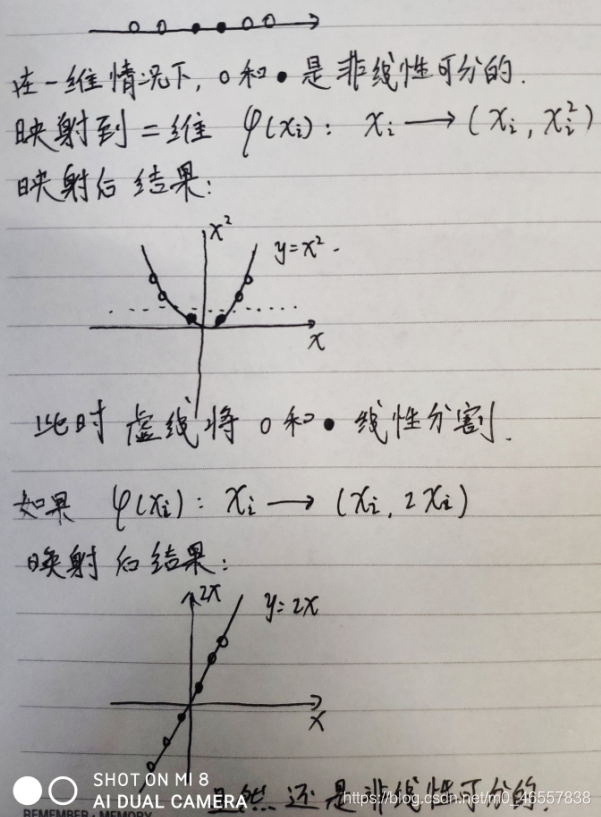 在一维情况下, o和•是非线性可分的.
映射到二维 φ(xi): xi → (xi, xi²)
映射后结果:
x²
y=x².
x
此时虚线将o和•线性分割.
如果 φ(xi): xi → (xi, 2xi)
映射后结果:
2x
y=2x
x
显然还是非线性可分的.
SHOT ON MI 8
AI DUAL CAMERA
https://blog.csdn.net/m0_46557838
REMEMBER · MEMORY